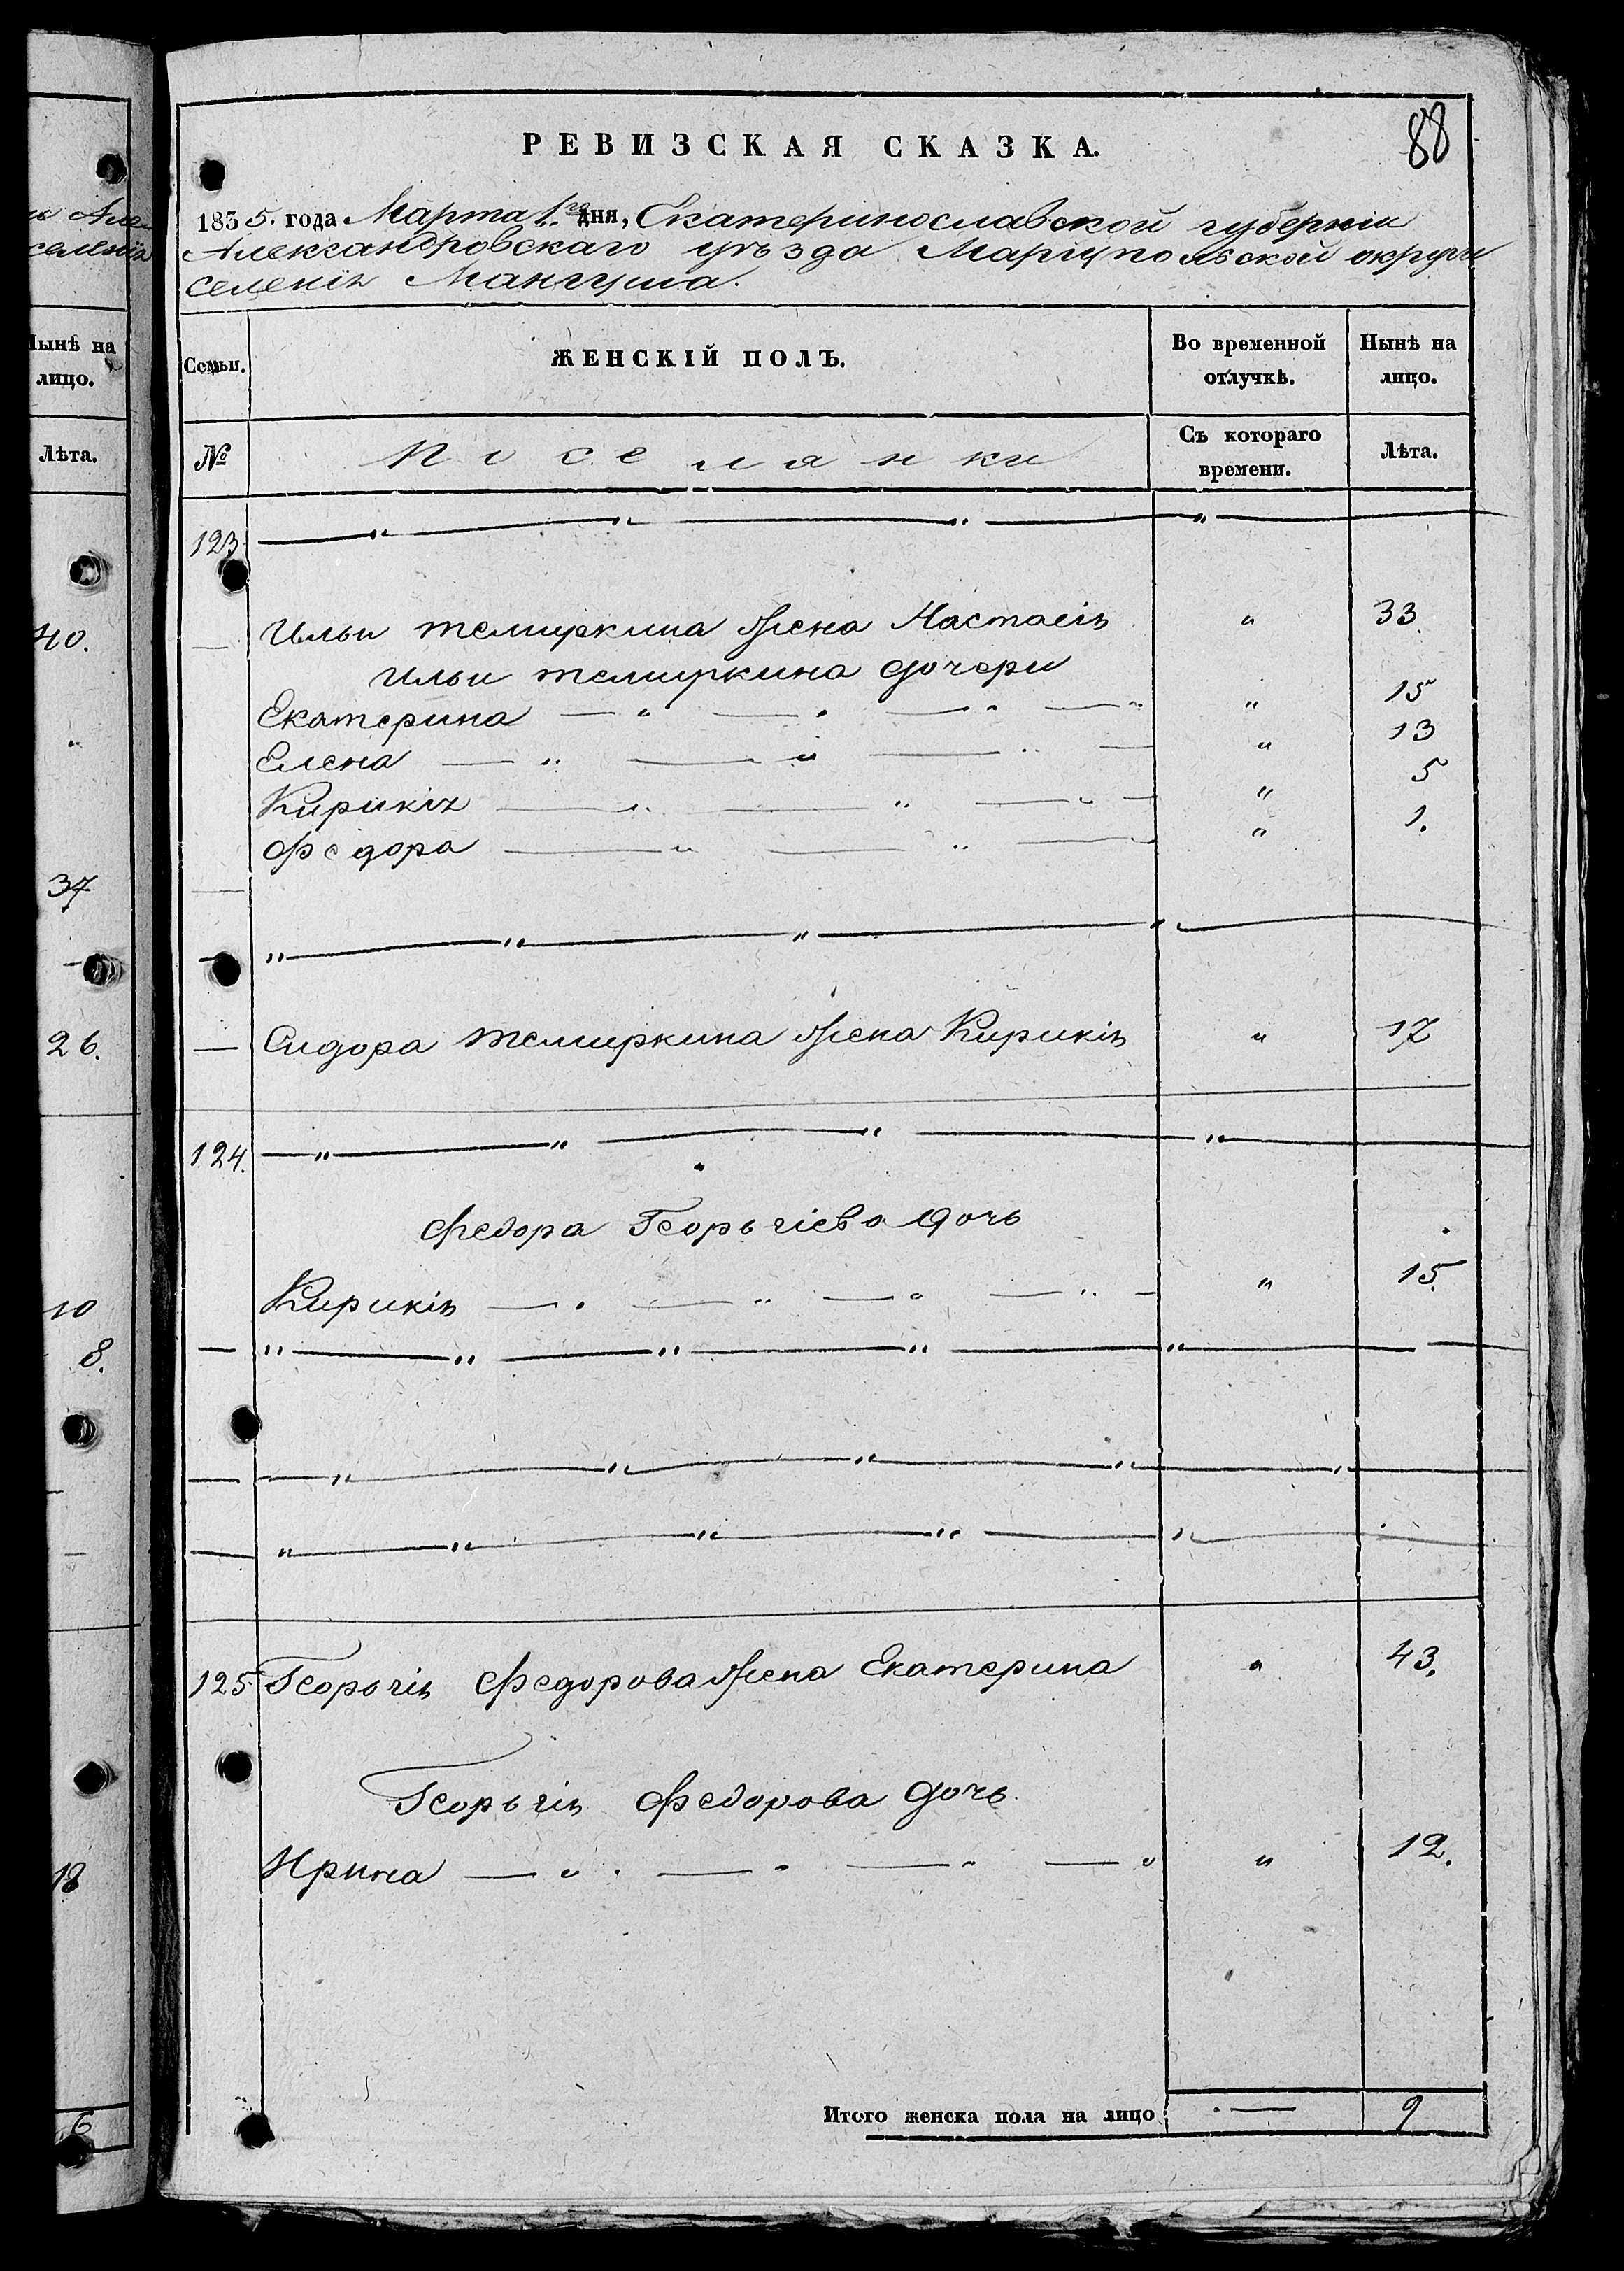 88
РЕВИЗСКАЯ СКАЗКА.
1835. года Марта 1го дня, Екатеринославской губерніи
Александровскаго уѣзда Маріупольской округи
селенія Мангуша.
Семьи.
ЖЕНСКІЙ ПОЛЪ.
Во временной отлучкѣ.
Нынѣ на лицо.
№
Поселянки
Съ котораго времени.
Лѣта.
123 — " — " — " — "
— Ильи Темиркина жена Настасія " 33
Ильи Темиркина дочери
Екатерина — " — " — " — " " 15
Елена — " — " — " — " 13
Кирикія — " — " — " — " 5
Федора — " — " — " 1.
— " — " — " — "
— Сидора Темиркина жена Кирикія " 17
124. — " — " — " — "
Федора Георгіева дочь
Кирикія — " — " — " — " — " 15.
— " — " — " — " — " —
— — " — " — " — " — "
— " — " — " — " — "
125 Георгія Федорова жена Екатерина " 43.
Георгія Федорова дочь
Ирина — " — " — " — " " 12.
Итого женска пола на лицо: — 9
Нынѣ на
лицо.
Лѣта.
40.
37
26.
10
8.
18
6